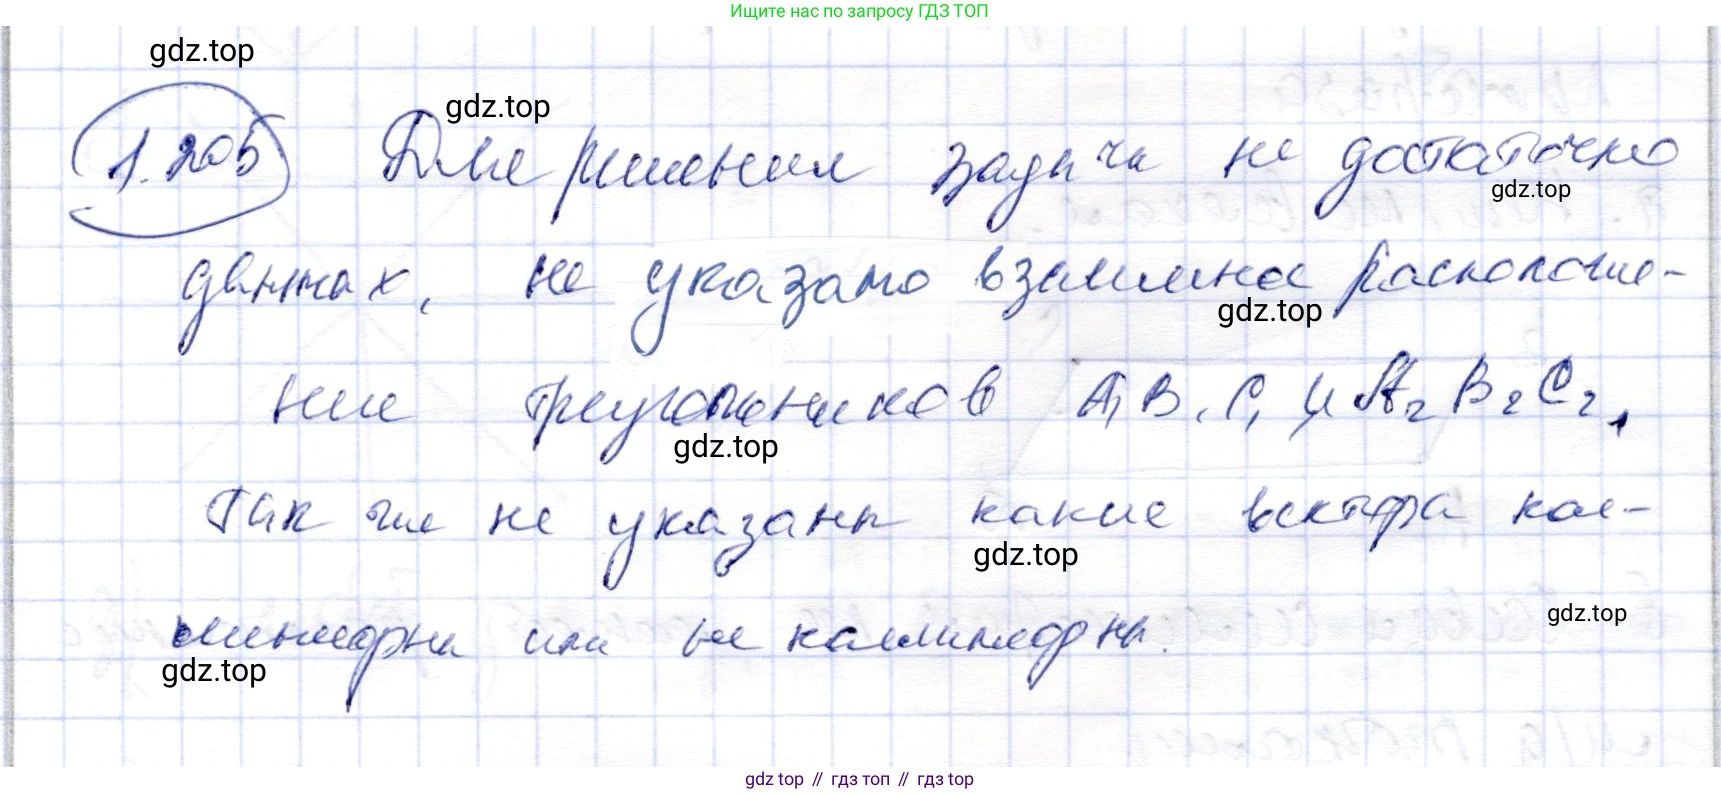 Ищите нас по запросу ГДЗ ТОП
gdz.top
gdz.top
1.205 Для решения задачи не достаточно
gdz.top
данных, не указано взаимное расположе-
gdz.top
ние треугольников A₁B₁C₁ и A₂B₂C₂,
gdz.top
так же не указаны какие вектора кол-
gdz.top
линеарны или не коллинеарны.
gdz.top
gdz.top
gdz top // гдз топ // гдз top